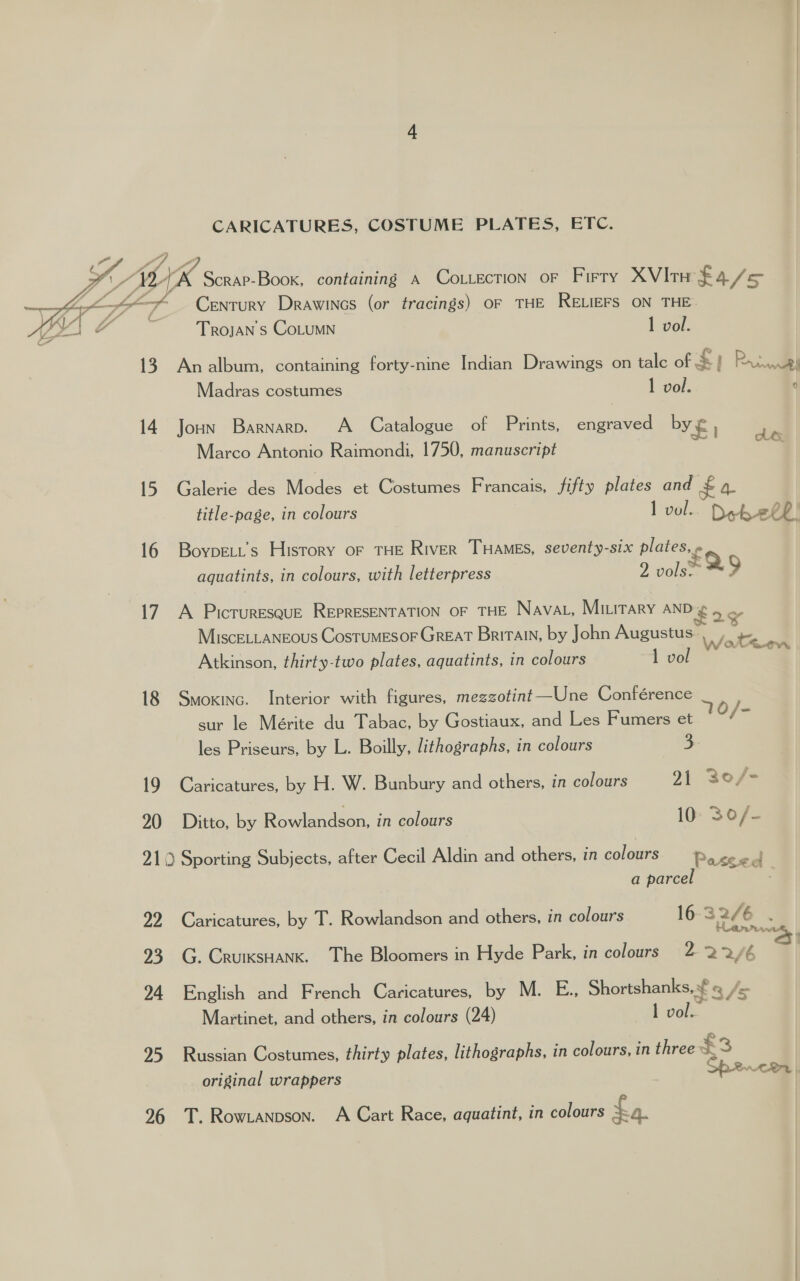 4
CARICATURES, COSTUME PLATES, ETC.
12 A Scrap-Book, containing a Collection of Fifty XVIth £4/5
Century Drawings (or tracings) of the Reliefs on the
Trojan's Column 1 vol.
13 An album, containing forty-nine Indian Drawings on talc of £1
Madras costumes 1 vol.
14 John Barnard. A Catalogue of Prints, engraved by £1 do
Marco Antonio Raimondi, 1750, manuscript
15 Galerie des Modes et Costumes Francais, fifty plates and £4
title-page, in colours 1 vol. Dobell
16 Boydell's History of the River Thames, seventy-six plates, £29
aquatints, in colours, with letterpress 2 vols.
17 A Picturesque Representation of the Naval, Military and £28
Miscellaneous Costumes of Great Britain, by John Augustus
Atkinson, thirty-two plates, aquatints, in colours 1 vol
18 Smoking. Interior with figures, mezzotint—Une Conférence
sur le Mérite du Tabac, by Gostiaux, and Les Fumers et 10/-
les Priseurs, by L. Boilly, lithographs, in colours 3
19 Caricatures, by H. W. Bunbury and others, in colours 21 30/-
20 Ditto, by Rowlandson, in colours 10 30/-
21 Sporting Subjects, after Cecil Aldin and others, in colours Passed
a parcel
22 Caricatures, by T. Rowlandson and others, in colours 16 32/6
23 G. Cruikshank. The Bloomers in Hyde Park, in colours 2 22/6
24 English and French Caricatures, by M. E., Shortshanks, £3/5
Martinet, and others, in colours (24) 1 vol.
25 Russian Costumes, thirty plates, lithographs, in colours, in three £3
original wrappers Spencer
26 T. Rowlandson. A Cart Race, aquatint, in colours £4.